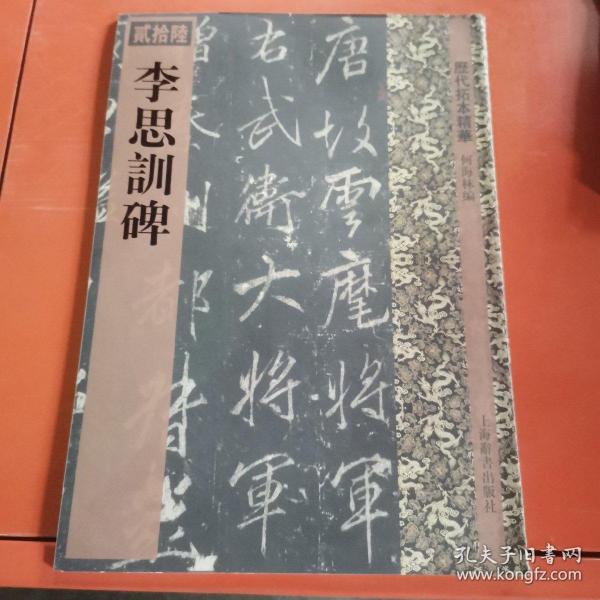 貳拾陸
李思訓碑
唐故雲麾將軍
右武衛大將軍
贈
都督
歷代拓本精華
何海林编
上海辭書出版社
孔夫子旧書网
www.kongfz.com